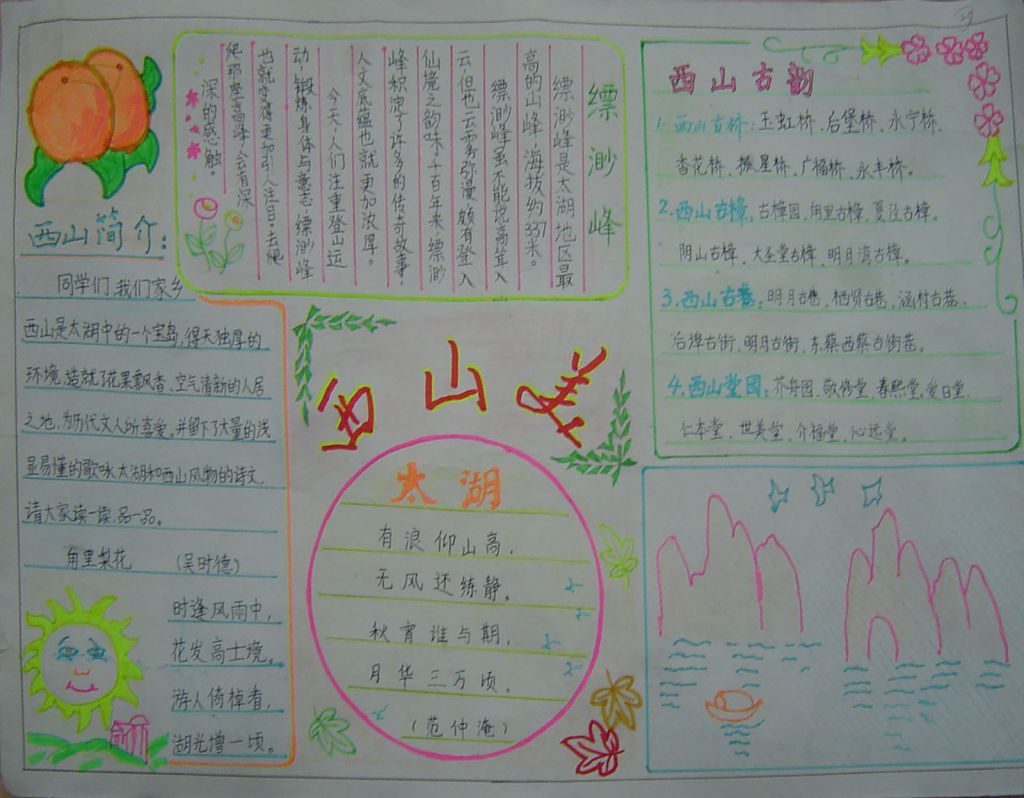 西山美
西山简介：
同学们，我们家乡
西山是太湖中的一个宝岛，得天独厚的
环境，造就了花果飘香、空气清新的人居
之地，为历代文人所喜爱，并留下了大量的浅
显易懂的歌咏太湖和西山风物的诗文，
请大家读一读，品一品。
甪里梨花 （吴时德）
时逢风雨中，
花发高士境。
游人倚棹看，
湖光增一顷。
缥渺峰
缥渺峰是太湖地区最
高的山峰，海拔约337米。
缥渺峰虽不能说高耸入
云，但也云雾弥漫，颇有登入
仙境之韵味。千百年来，缥渺
峰积淀了许多的传奇故事，
人文底蕴也就更加浓厚。
今天，人们注重登山运
动，锻炼身体与意志，缥渺峰
也就变得更加引人注目。去爬
爬那座高峰，会有深
深的感触。
太湖
有浪仰山高，
无风还练静。
秋宵谁与期，
月华三万顷。
（范仲淹）
西山古韵
1.西山古桥：玉虹桥、后堡桥、永宁桥、
杏花桥、振星桥、广福桥、永丰桥。
2.西山古樟：古樟园、甪里古樟、夏泾古樟、
阴山古樟、大圣堂古樟、明月湾古樟。
3.西山古巷：明月古巷、栖贤古巷、涵村古巷、
后埠古街、明月古街、东蔡西蔡古街巷。
4.西山堂园：芥舟园、敬修堂、春熙堂、爱日堂、
仁本堂、世美堂、介福堂、沁远堂。